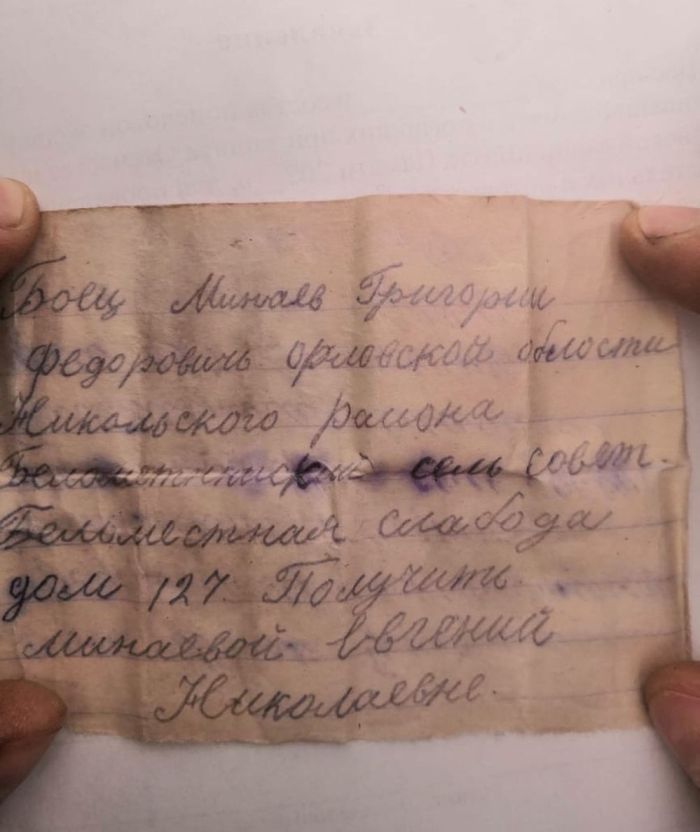 Боец Минаев Григории
Федорович орловской области
Никольского раиона
Беломестнинский сель совет.
Беломестная слабода
дом 127. Получить
минаевой Евгений
Николаевне.